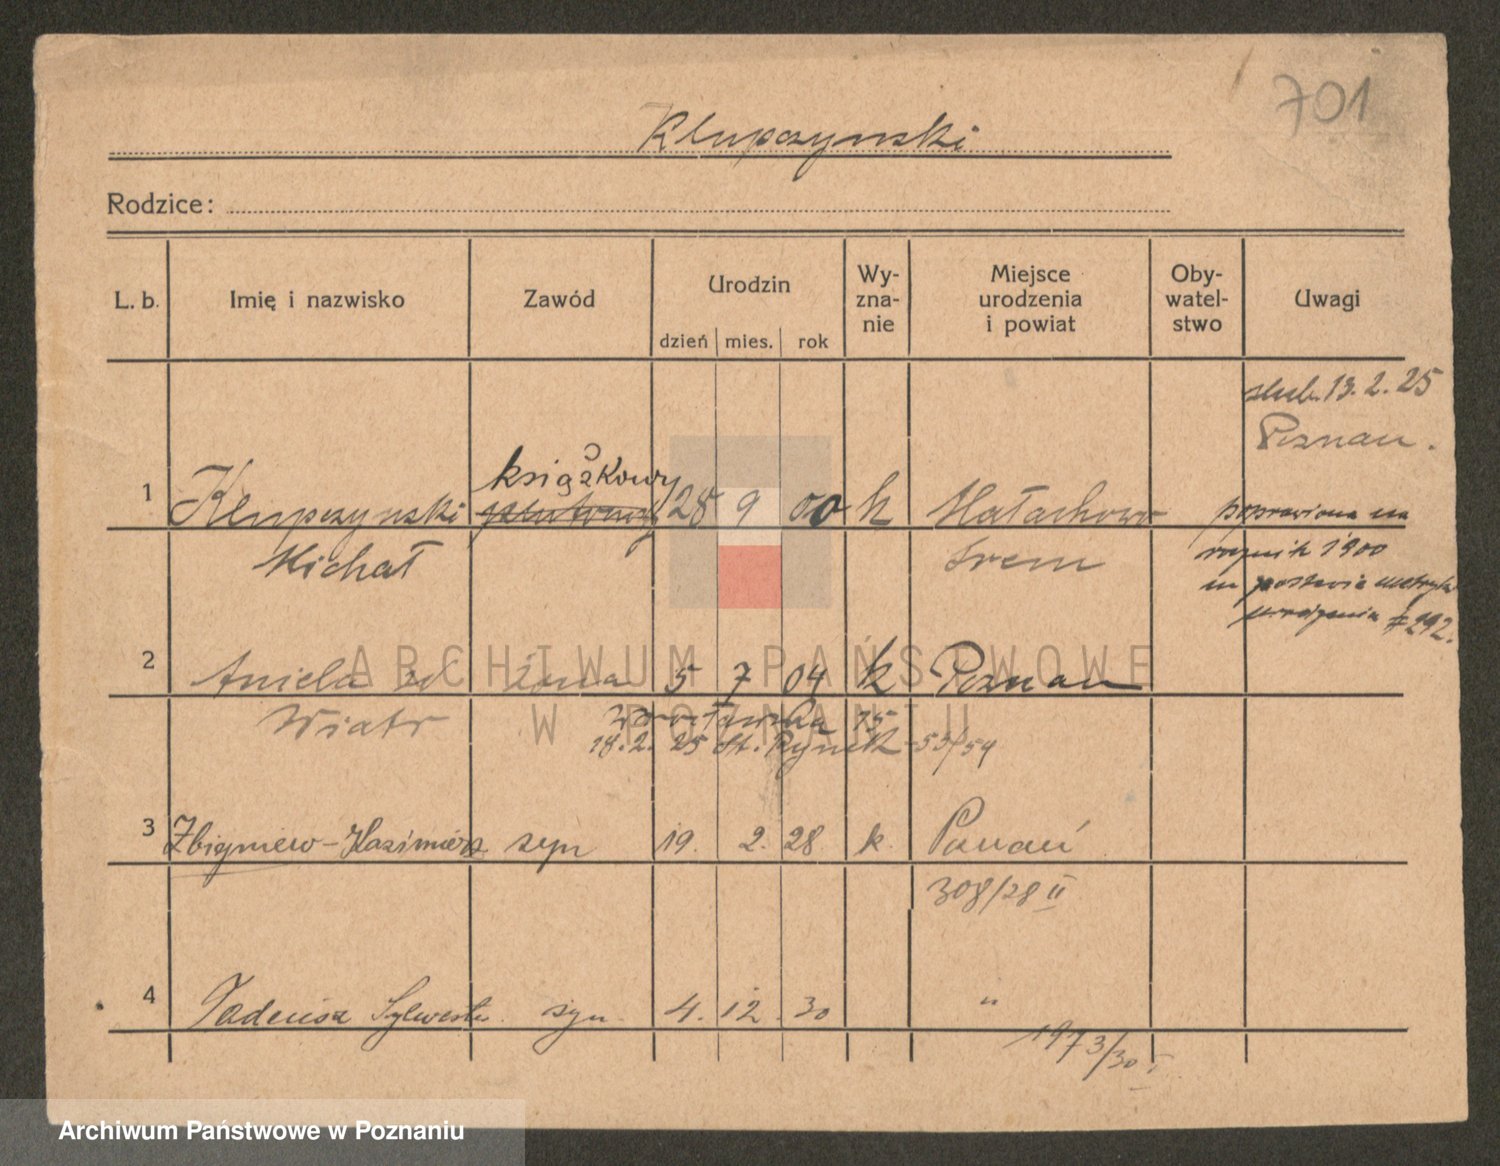 701
Klupczynski
Rodzice:
L. b. Imię i nazwisko Zawód Urodzin dzień mies. rok Wy-zna-nie Miejsce urodzenia i powiat Oby-watel-stwo Uwagi
slub. 13. 2. 25
Poznan.
książkowy
1 Klupczynski 28 9 00 k Małachowo poprawiono na
Michał Srem rocznik 1900
na postawie metryki
urodzenia # 292.
2 Aniela zd żona 5 7 04 k Poznan
Wiatr Wrocławska 15
18. 2. 25 St. Rynek 53/54
3 Zbigniew-Kazimierz syn 19. 2. 28 k. Poznań
308/28 II
4 Tadeusz Sylwester syn 4. 12. 30 "
1973/30 I
ARCHIWUM PAŃSTWOWE
W POZNANIU
Archiwum Państwowe w Poznaniu